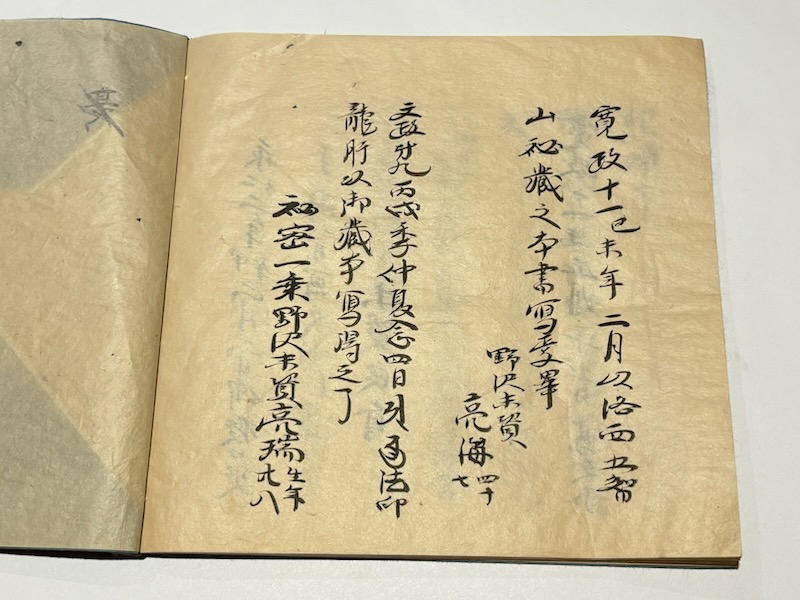 寛政十一己未年二月以洛西五智
山秘藏之本書寫交畢
野沢末資
亮海 四十七
文政第九丙戌季仲夏念四日法印
龍肝以御藏本寫得之了
秘密一乗野沢末資亮瑞 生年廿八